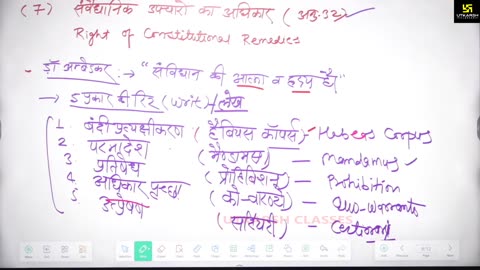 (7) संवैधानिक उपचारों का अधिकार (अनु.32)
Right of Constitutional Remedies
- डॉ अम्बेडकर :→ "संविधान की आत्मा व हृदय है।"
→ 5 प्रकार की रिट (writ)/लेख
1. बंदी प्रत्यक्षीकरण (हैबियस कॉपर्स) - Habeas Corpus
2. परमादेश (मैण्डामस) - Mandamus
3. प्रतिषेध (प्रोहिबिशन) - Prohibition
4. अधिकार पृच्छा (को-वारण्टो) - Quo-Warranto
5. उत्प्रेषण (सर्टियरी) - Certiorari
UTKARSH CLASSES